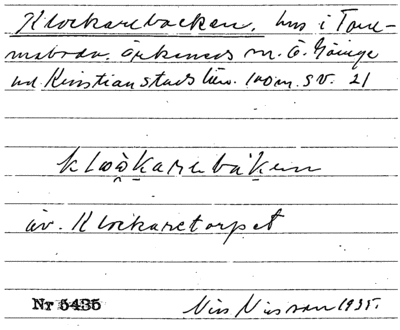 Klockarebacken, hus i Tom-
maboda, Örkeneds sn. Ö. Göinge
hd. Kristianstads län. 100 m. SV. 21
äv. Klockaretorpet
Nr 5435 Nils Nilsson 1935.